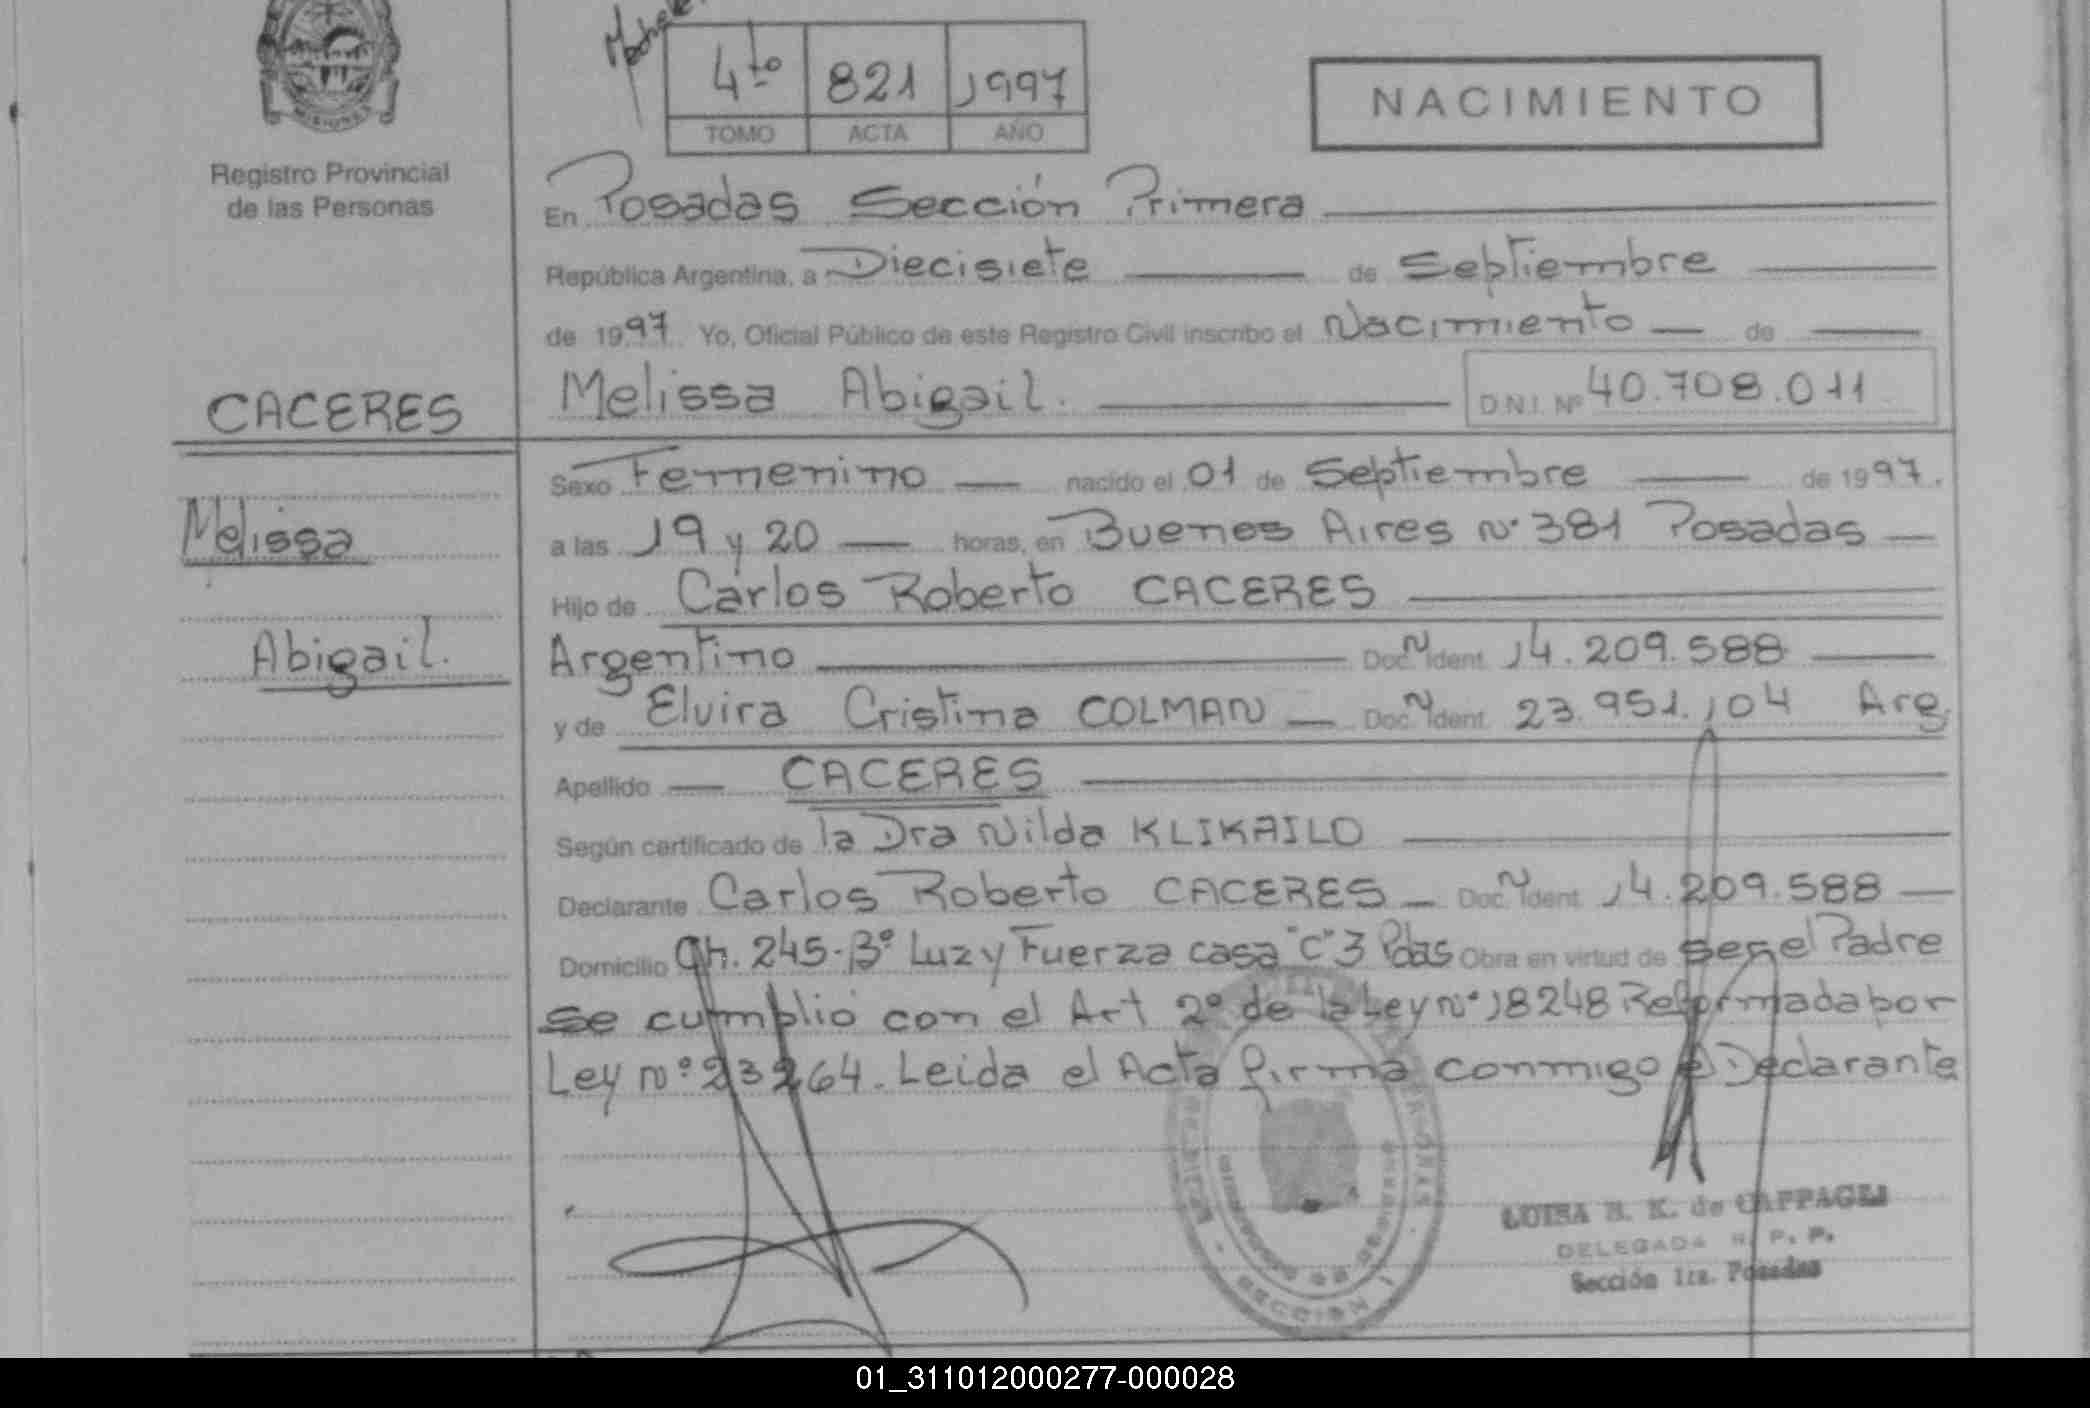 MISIONES
4to 821 1997
TOMO ACTA AÑO
NACIMIENTO
Registro Provincial
de las Personas
En Posadas Sección Primera
República Argentina, a Diecisiete de Septiembre
de 1997 Yo, Oficial Público de este Registro Civil inscribo el Nacimiento de
CACERES
Melissa Abigail. D.N.I. Nº 40.708.011
Sexo Femenino nacido el 01 de Septiembre de 1997.
Melissa
a las 19 y 20 horas, en Buenos Aires Nº 381 Posadas
Hijo de Carlos Roberto CACERES
Abigail.
Argentino Doc. N Ident. 14.209.588
y de Elvira Cristina COLMAN Doc. N Ident. 23.951.104 Arg
Apellido CACERES
Según certificado de la Dra Nilda KLIKAILO
Declarante Carlos Roberto CACERES Doc. N Ident. 14.209.588
Domicilio Ch. 245-Bº Luz y Fuerza casa "C" 3 Pdas Obra en virtud de ser el Padre
Se cumplió con el Art 2º de la Ley nº 18248 Reformada por
Ley nº 23264. Leida el Acta firma conmigo el Declarante
LUISA H. K. de CAPPAGLI
DELEGADA R. P. P.
Sección 1ra. Posadas
SECCION 1
01_311012000277-000028